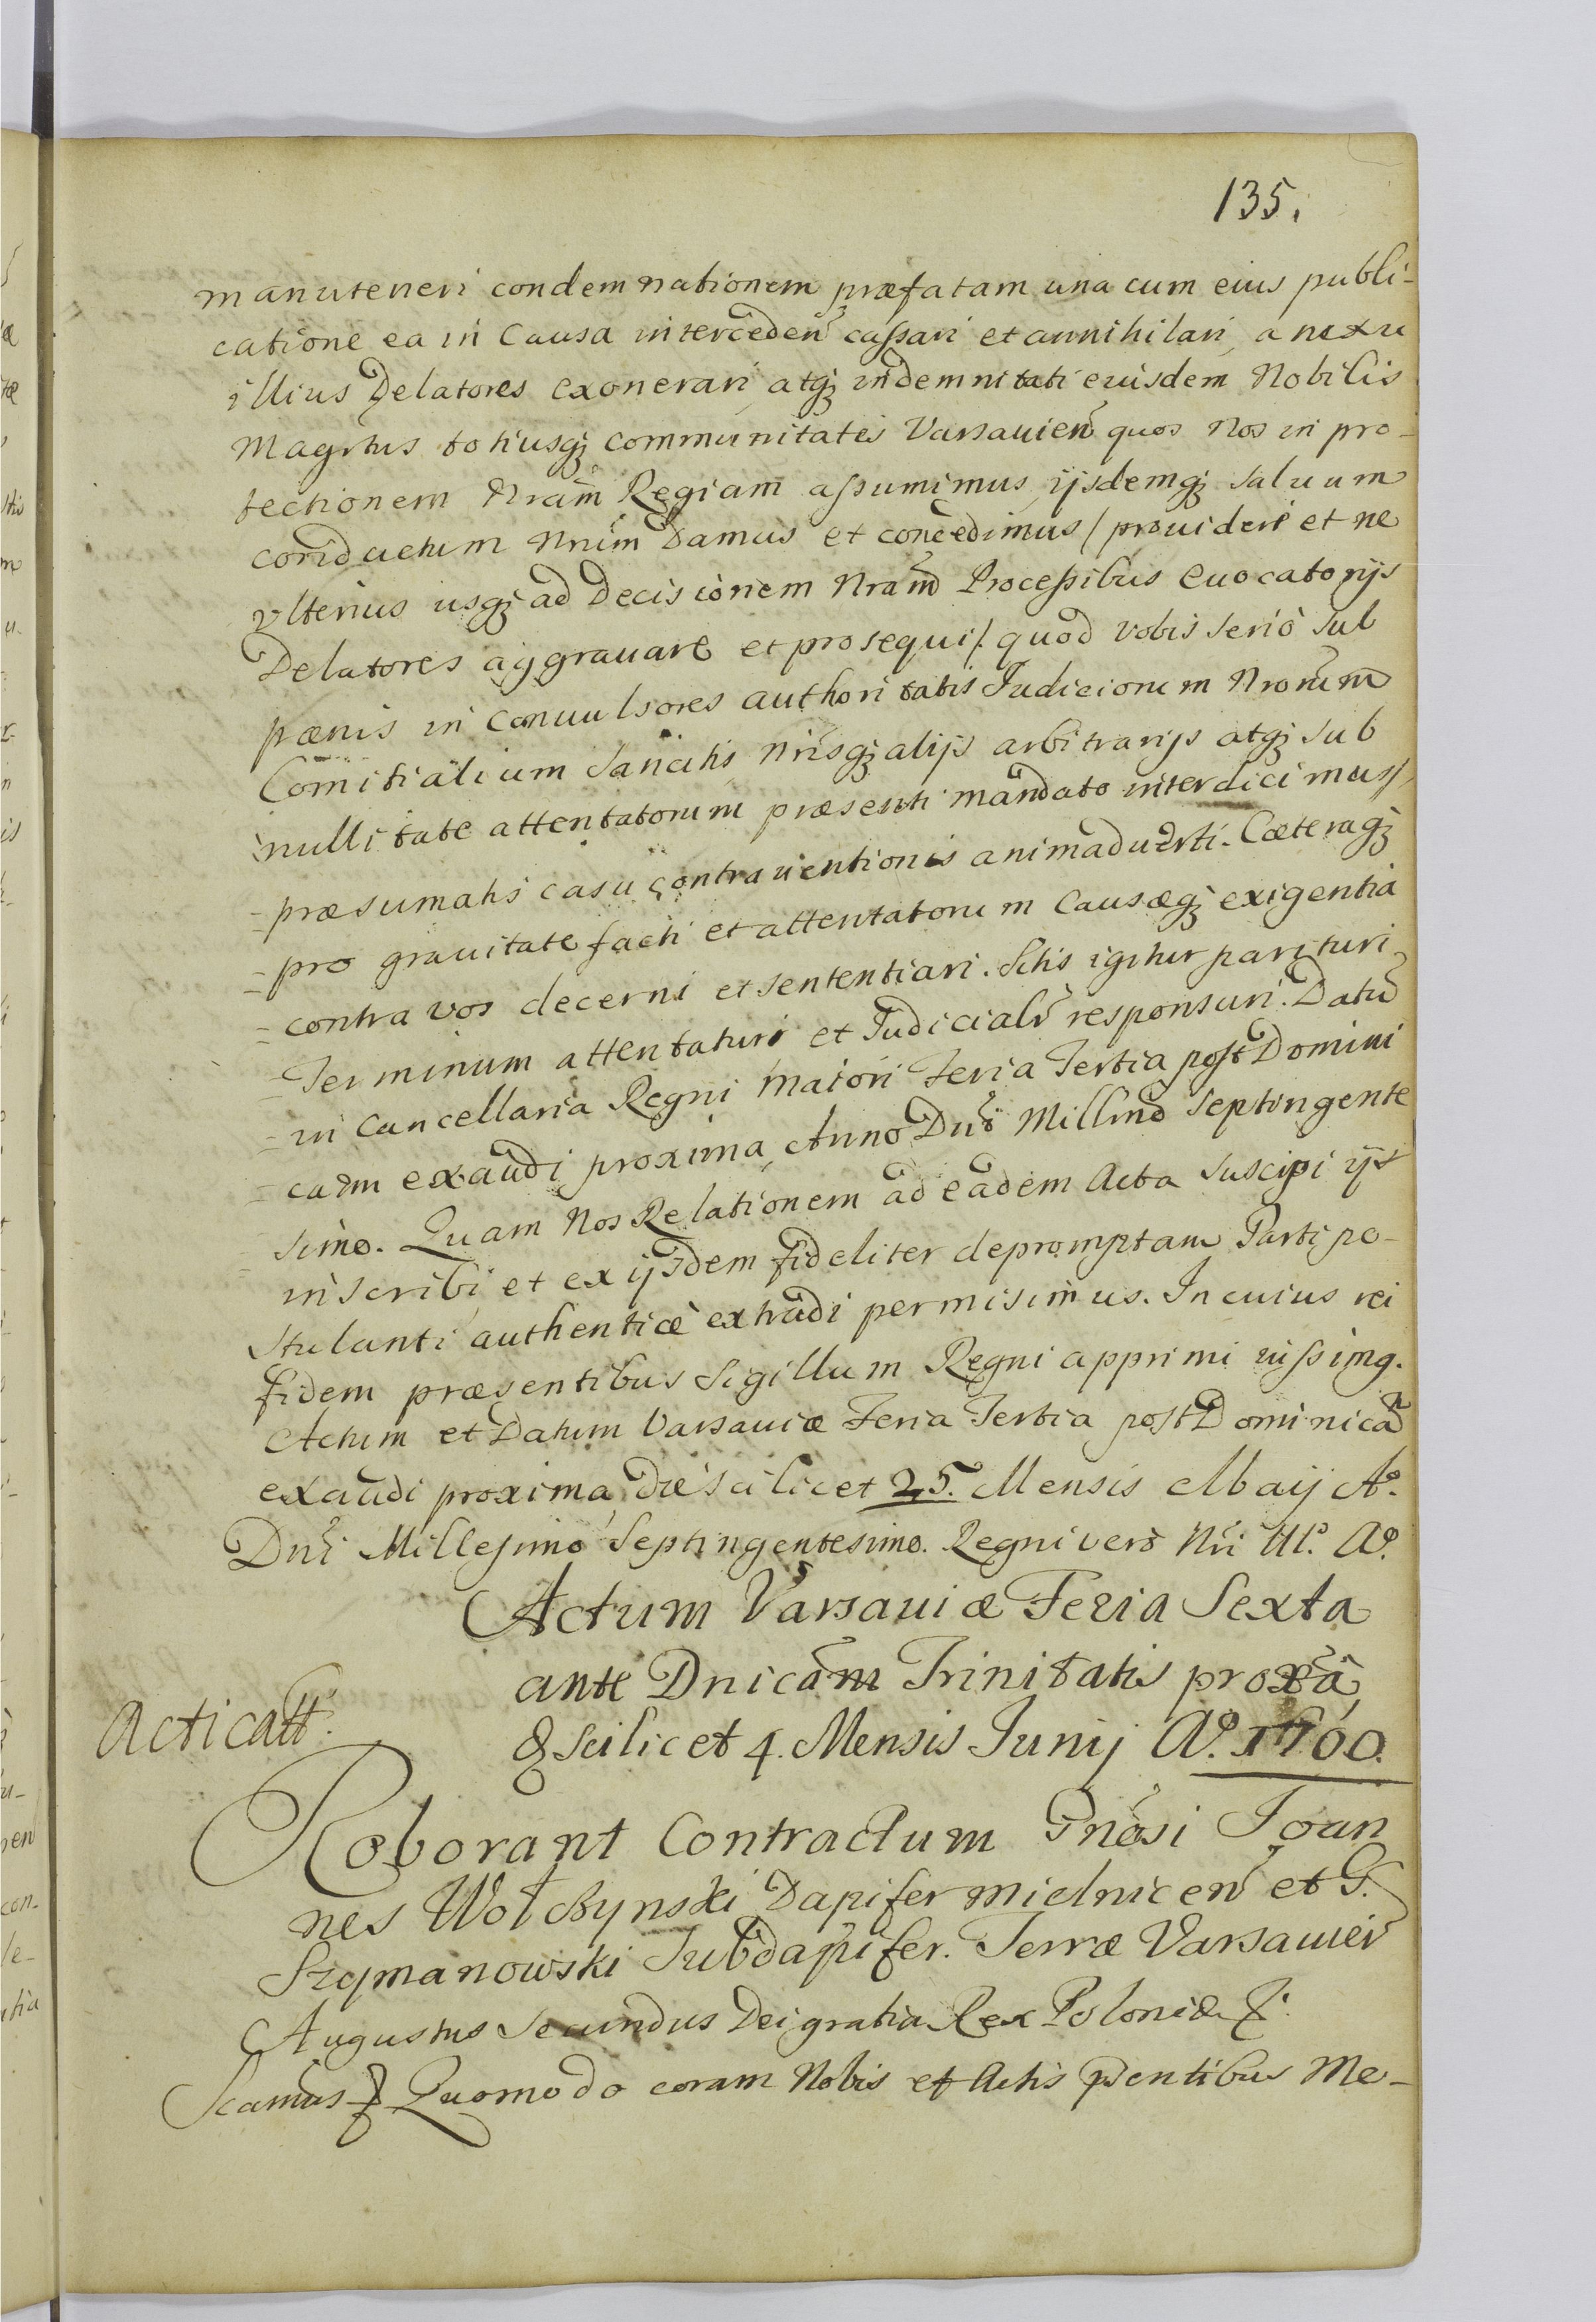 135.
manuteneri condemnationem præfatam una cum eius publi-
catione ea in Causa interceden̄ cassari et annihilari, a nexu
illius Delatores exonerari, atq3 indemnitati eiusdem Nobilis
Magr̃tus totiusq3 communitatis Varsavien̄ quos Nos in pro-
tectionem Nram̄ Regiam assumimus, ijsdemq3 saluum
conductum Nrum̄ Damus et concedimus / provideri et ne
vlterius usq3 ad Decisionem Nram̄ Processibus Evocatorijs
Delatores aggravare et prosequi /. quod vobis seriò sub
pœnis in Convulsores authoritatis Iudiciorum Nrorum̄
Comitialium sancitis Nrisq3 alijs arbitrarijs atq3 sub
nullitate attentatorum præsenti mandato interdicimus /
- præsumatis casu contraventionis animadverti. Cæteraq3
- pro gravitate facti et attentatorum Causæq3 exigentia
- contra vos decerni et sententiari. Sitis igitur parituri,
- Terminum attentaturi et Iudicialr̃ responsuri. Datū
- in Cancellaria Regni Maiori Feria Tertia post Domini
cam exaudi proxima, Anno Dni Millmō Septingente
simo. Quam Nos Relationem ad eadem Acta suscipi ijs
inscribi, et ex ijsdem fideliter depromptam Parti po-
stulanti authenticè extradi permisimus. In cuius rei
fidem præsentibus Sigillum Regni apprimi iussimg.
Actum et Datum Varsaviæ Feria Tertia post Dominicā
exaudi proxima, die scilicet 25. Mensis Maij Aº.
Dni Millesimo Septingentesimo. Regni verò Nri III. Aº.
Actum Varsaviæ Feria Sexta
ante Dnicam̄ Trinitatis proxã
& scilicet 4. Mensis Junij Aº. 1700.
Acticatt.
Roborant Contractum Gnosi Joan
nes Wołchynski Dapifer Mielnicen̄ et G.
Szymanowski Subdapifer. Terræ Varsavien̄
Augustus Secundus Dei gratia Rex Poloniæ &.
Scamus & Quomodo coram Nobis et Actis pn̄tibus Me-